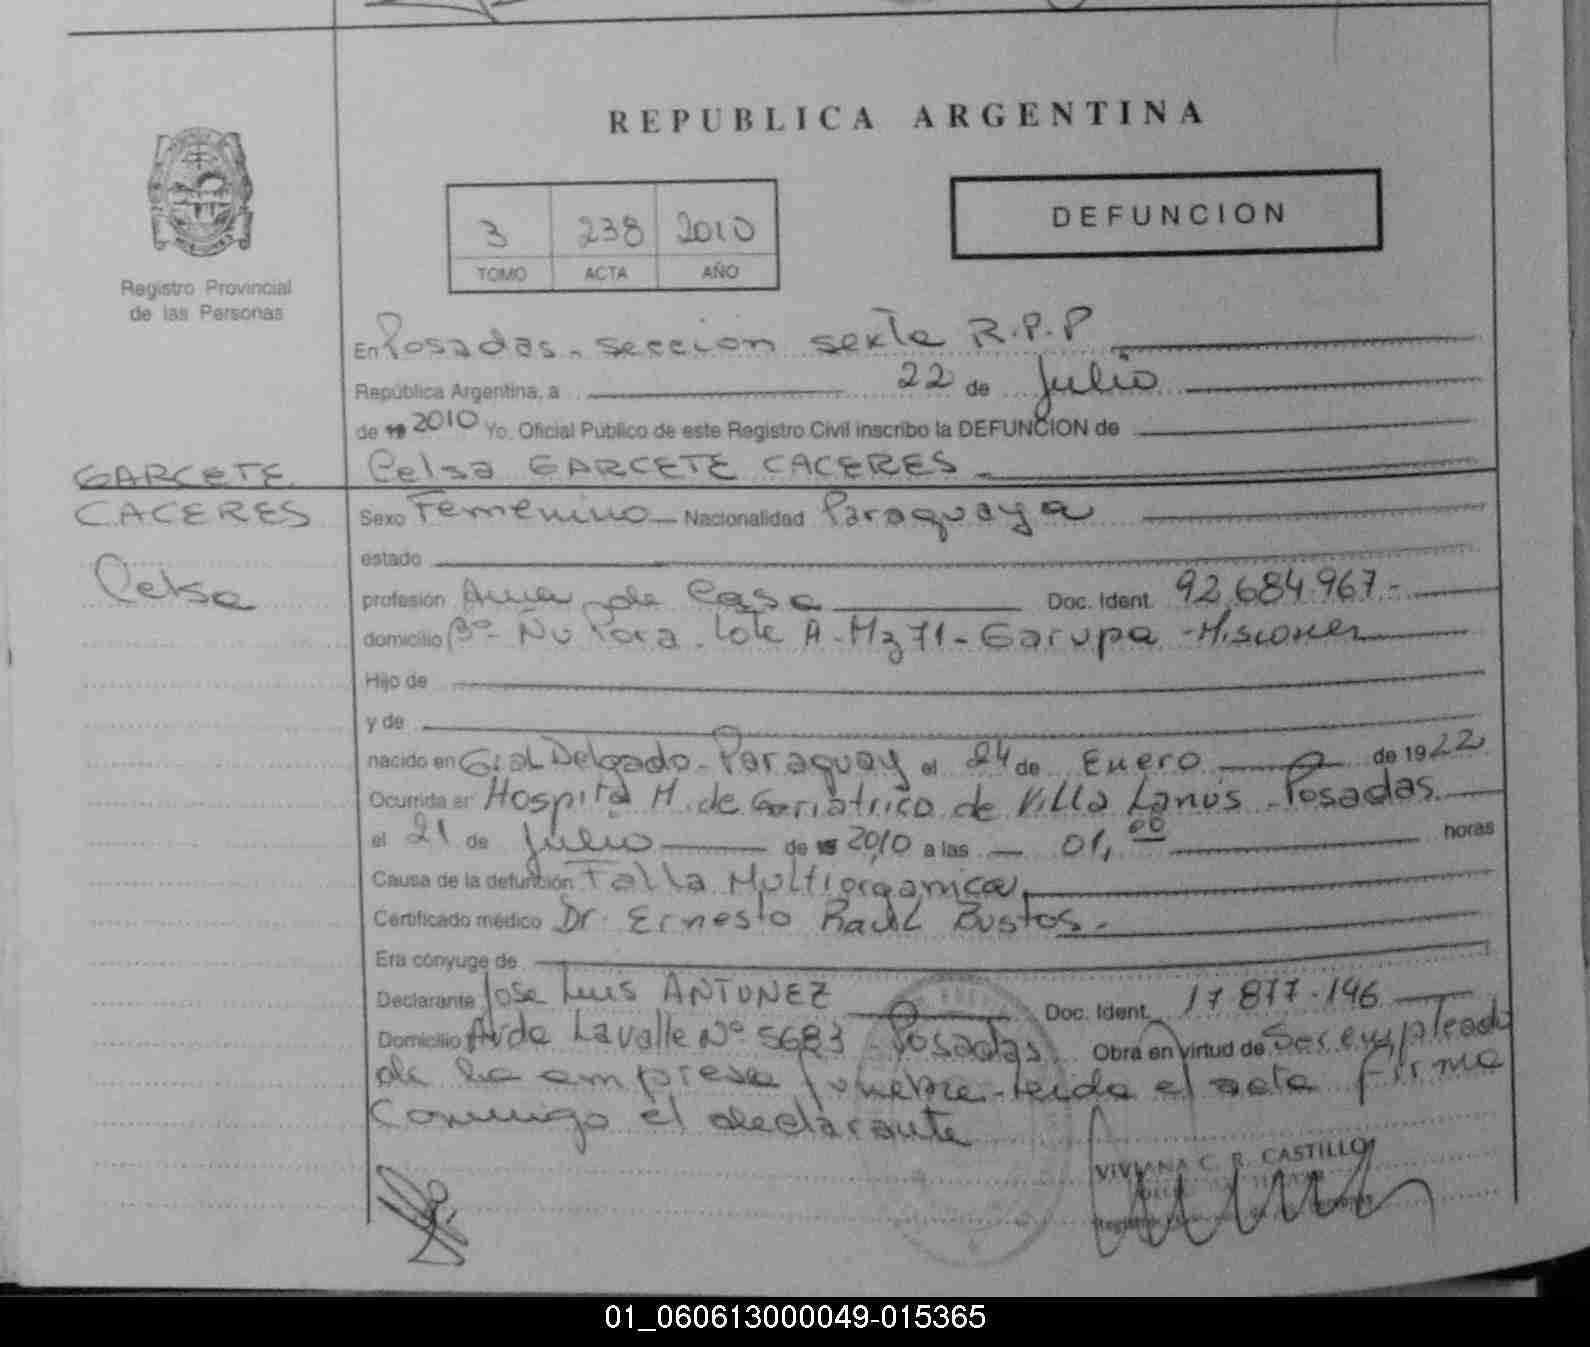 REPUBLICA ARGENTINA
3 238 2010
TOMO ACTA AÑO
DEFUNCION
Registro Provincial
de las Personas
En Posadas. seccion sexta R.P.P
República Argentina, a 22 de Julio
de 19 2010 Yo, Oficial Público de este Registro Civil inscribo la DEFUNCION de
GARCETE
CACERES
Celsa
Celsa GARCETE CACERES
Sexo Femenino Nacionalidad Paraguaya
estado
profesión Ama de Casa Doc. Ident. 92.684.967.-
domicilio Bº- Ñu Pora. Lote A-Mz 71-Garupa-Misiones
Hijo de
y de
nacido en Gral Delgado-Paraguay el 24 de Enero de 1922
Ocurrida en Hospital M. de Geriatrico de Villa Lanus-Posadas
el 21 de Julio de 19 2010 a las 01,00 horas
Causa de la defunción Falla Multiorganica
Certificado médico Dr. Ernesto Raul Bustos.
Era cónyuge de
Declarante Jose Luis ANTUNEZ Doc. Ident. 17.877.146
Domicilio Avda Lavalle Nº 5683 Posadas Obra en virtud de Ser empleado
de la empresa funebre-leida el acta firma
Conmigo el declarante
VIVIANA C. R. CASTILLO
01_060613000049-015365